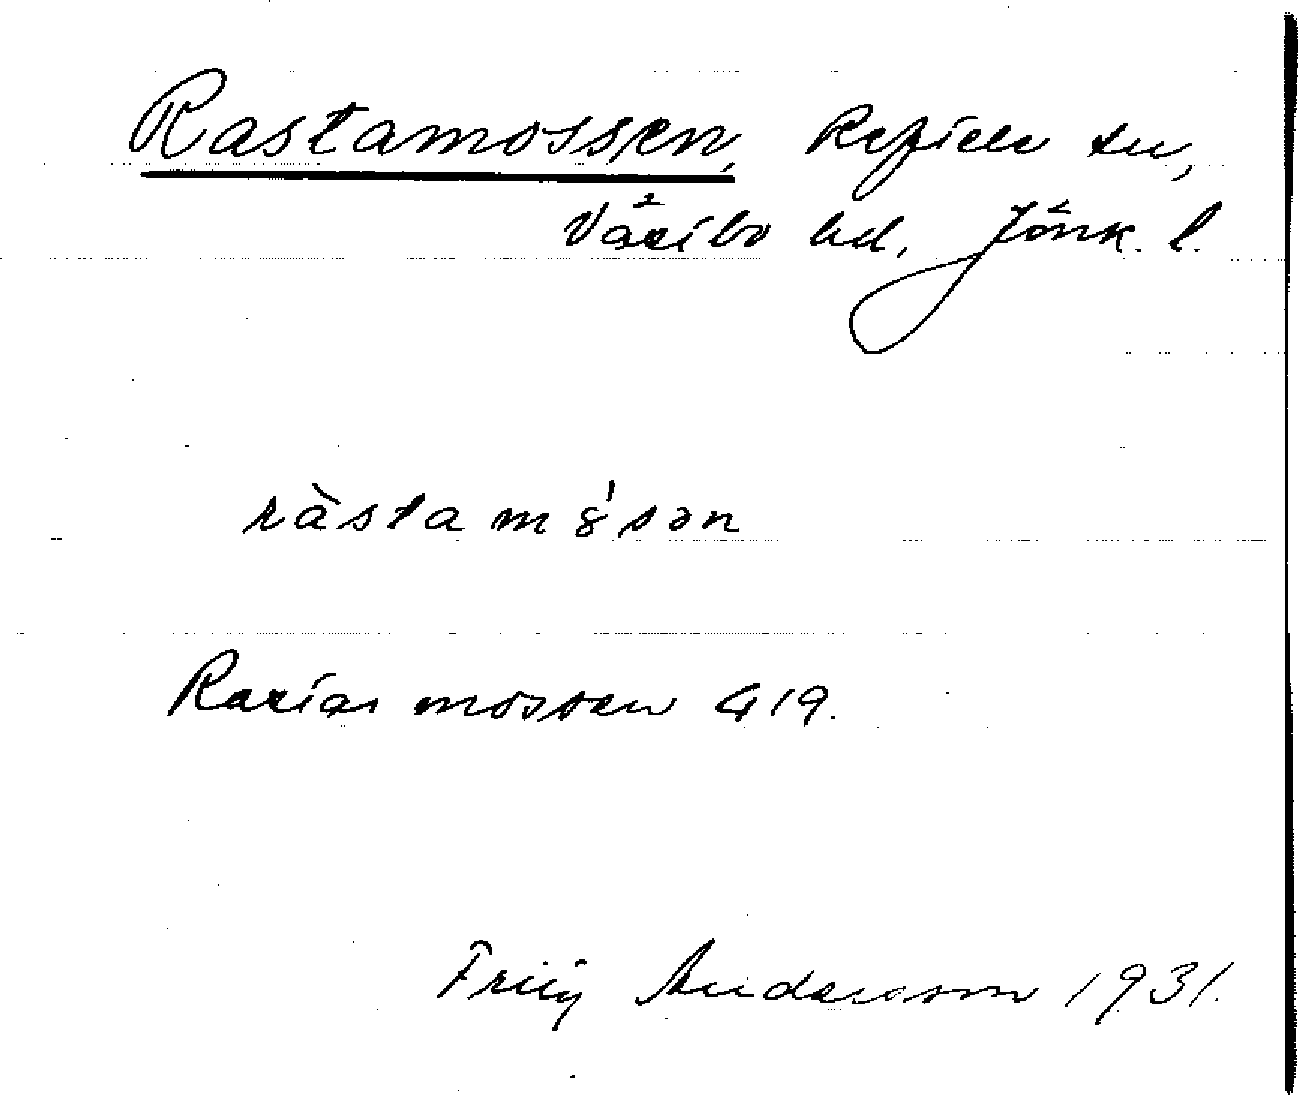 Rastamossen, Reftele sn,
Västbo hd, Jönk. l.
ràsta mȣ́sən
Rastas mossen 419.
Fritz Andersson 1931.